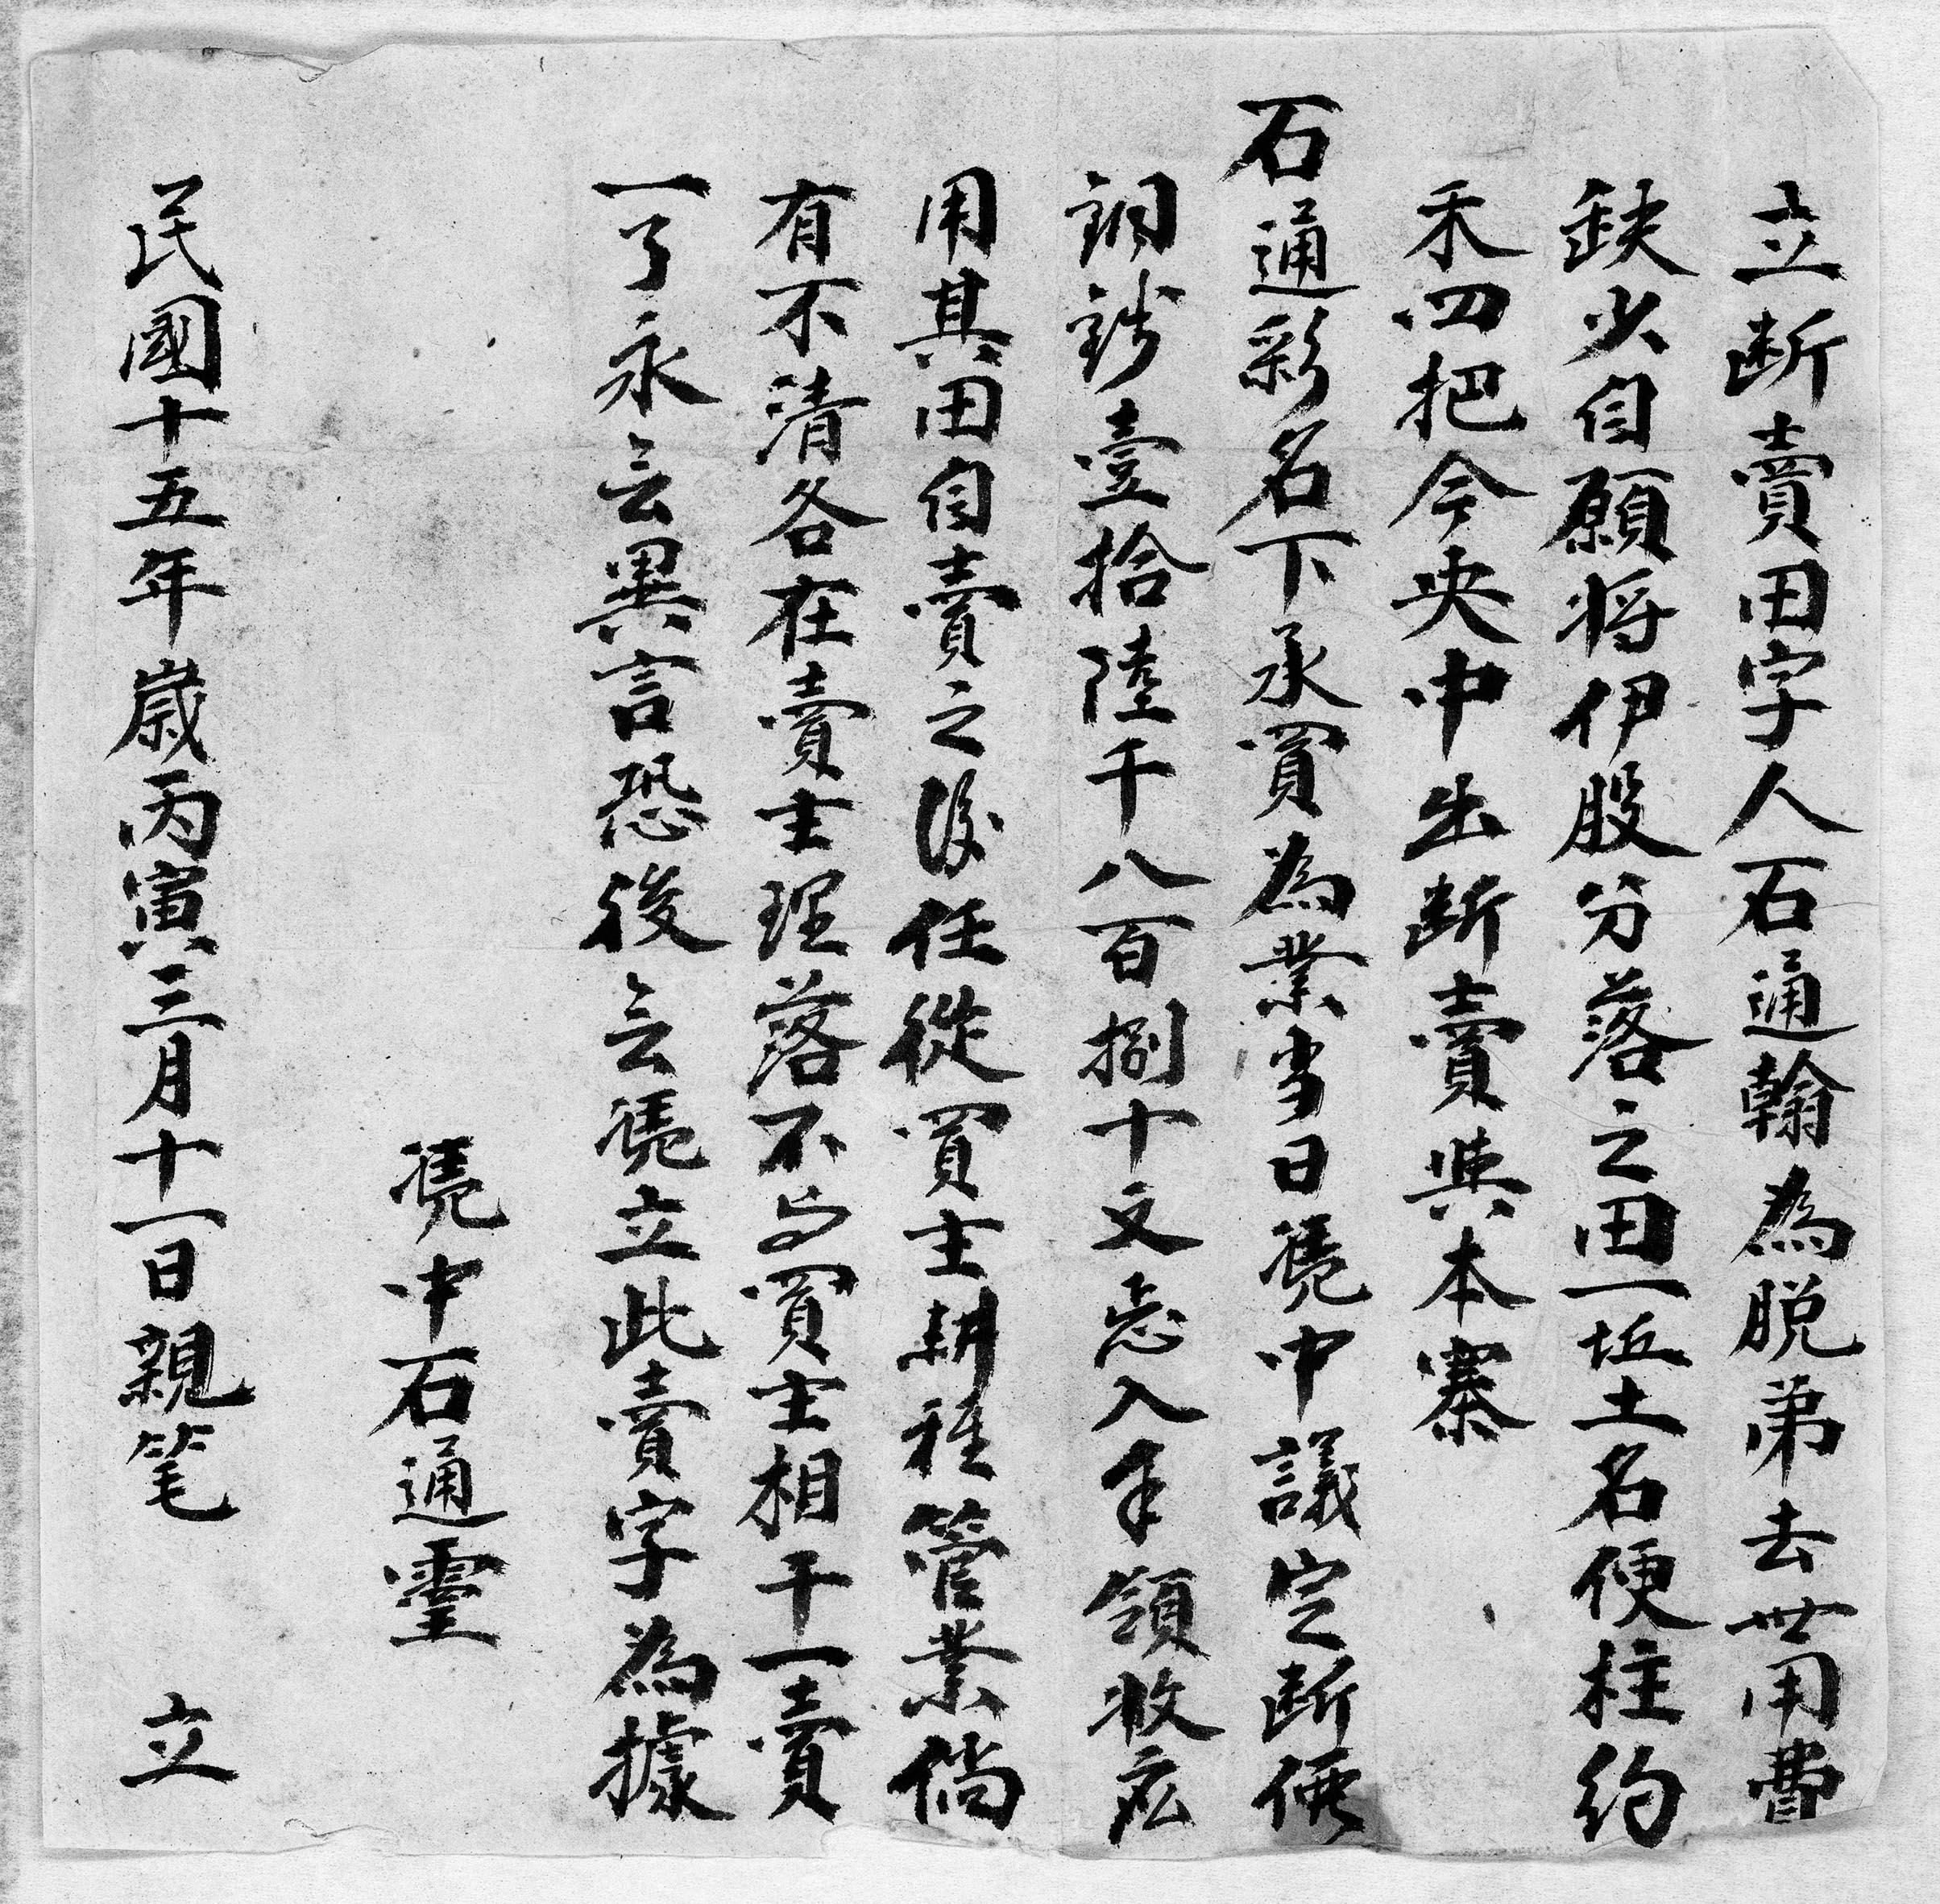 立断賣田字人石通翰為脱弟去世用費
缺少自願将伊股分落之田一坵土名便柱約
禾四把今央中出断賣與本寨
石通彩名下承買為業當日憑中議定断價
銅錢壹拾陸千八百捌十文悉入手領收応
用其田自賣之後任從買主耕種管業倘
有不清各在賣主理落不与買主相干一賣
一了永云異言恐後云憑立此賣字為據
憑中石通靈
民國十五年歲丙寅三月十一日親笔 立